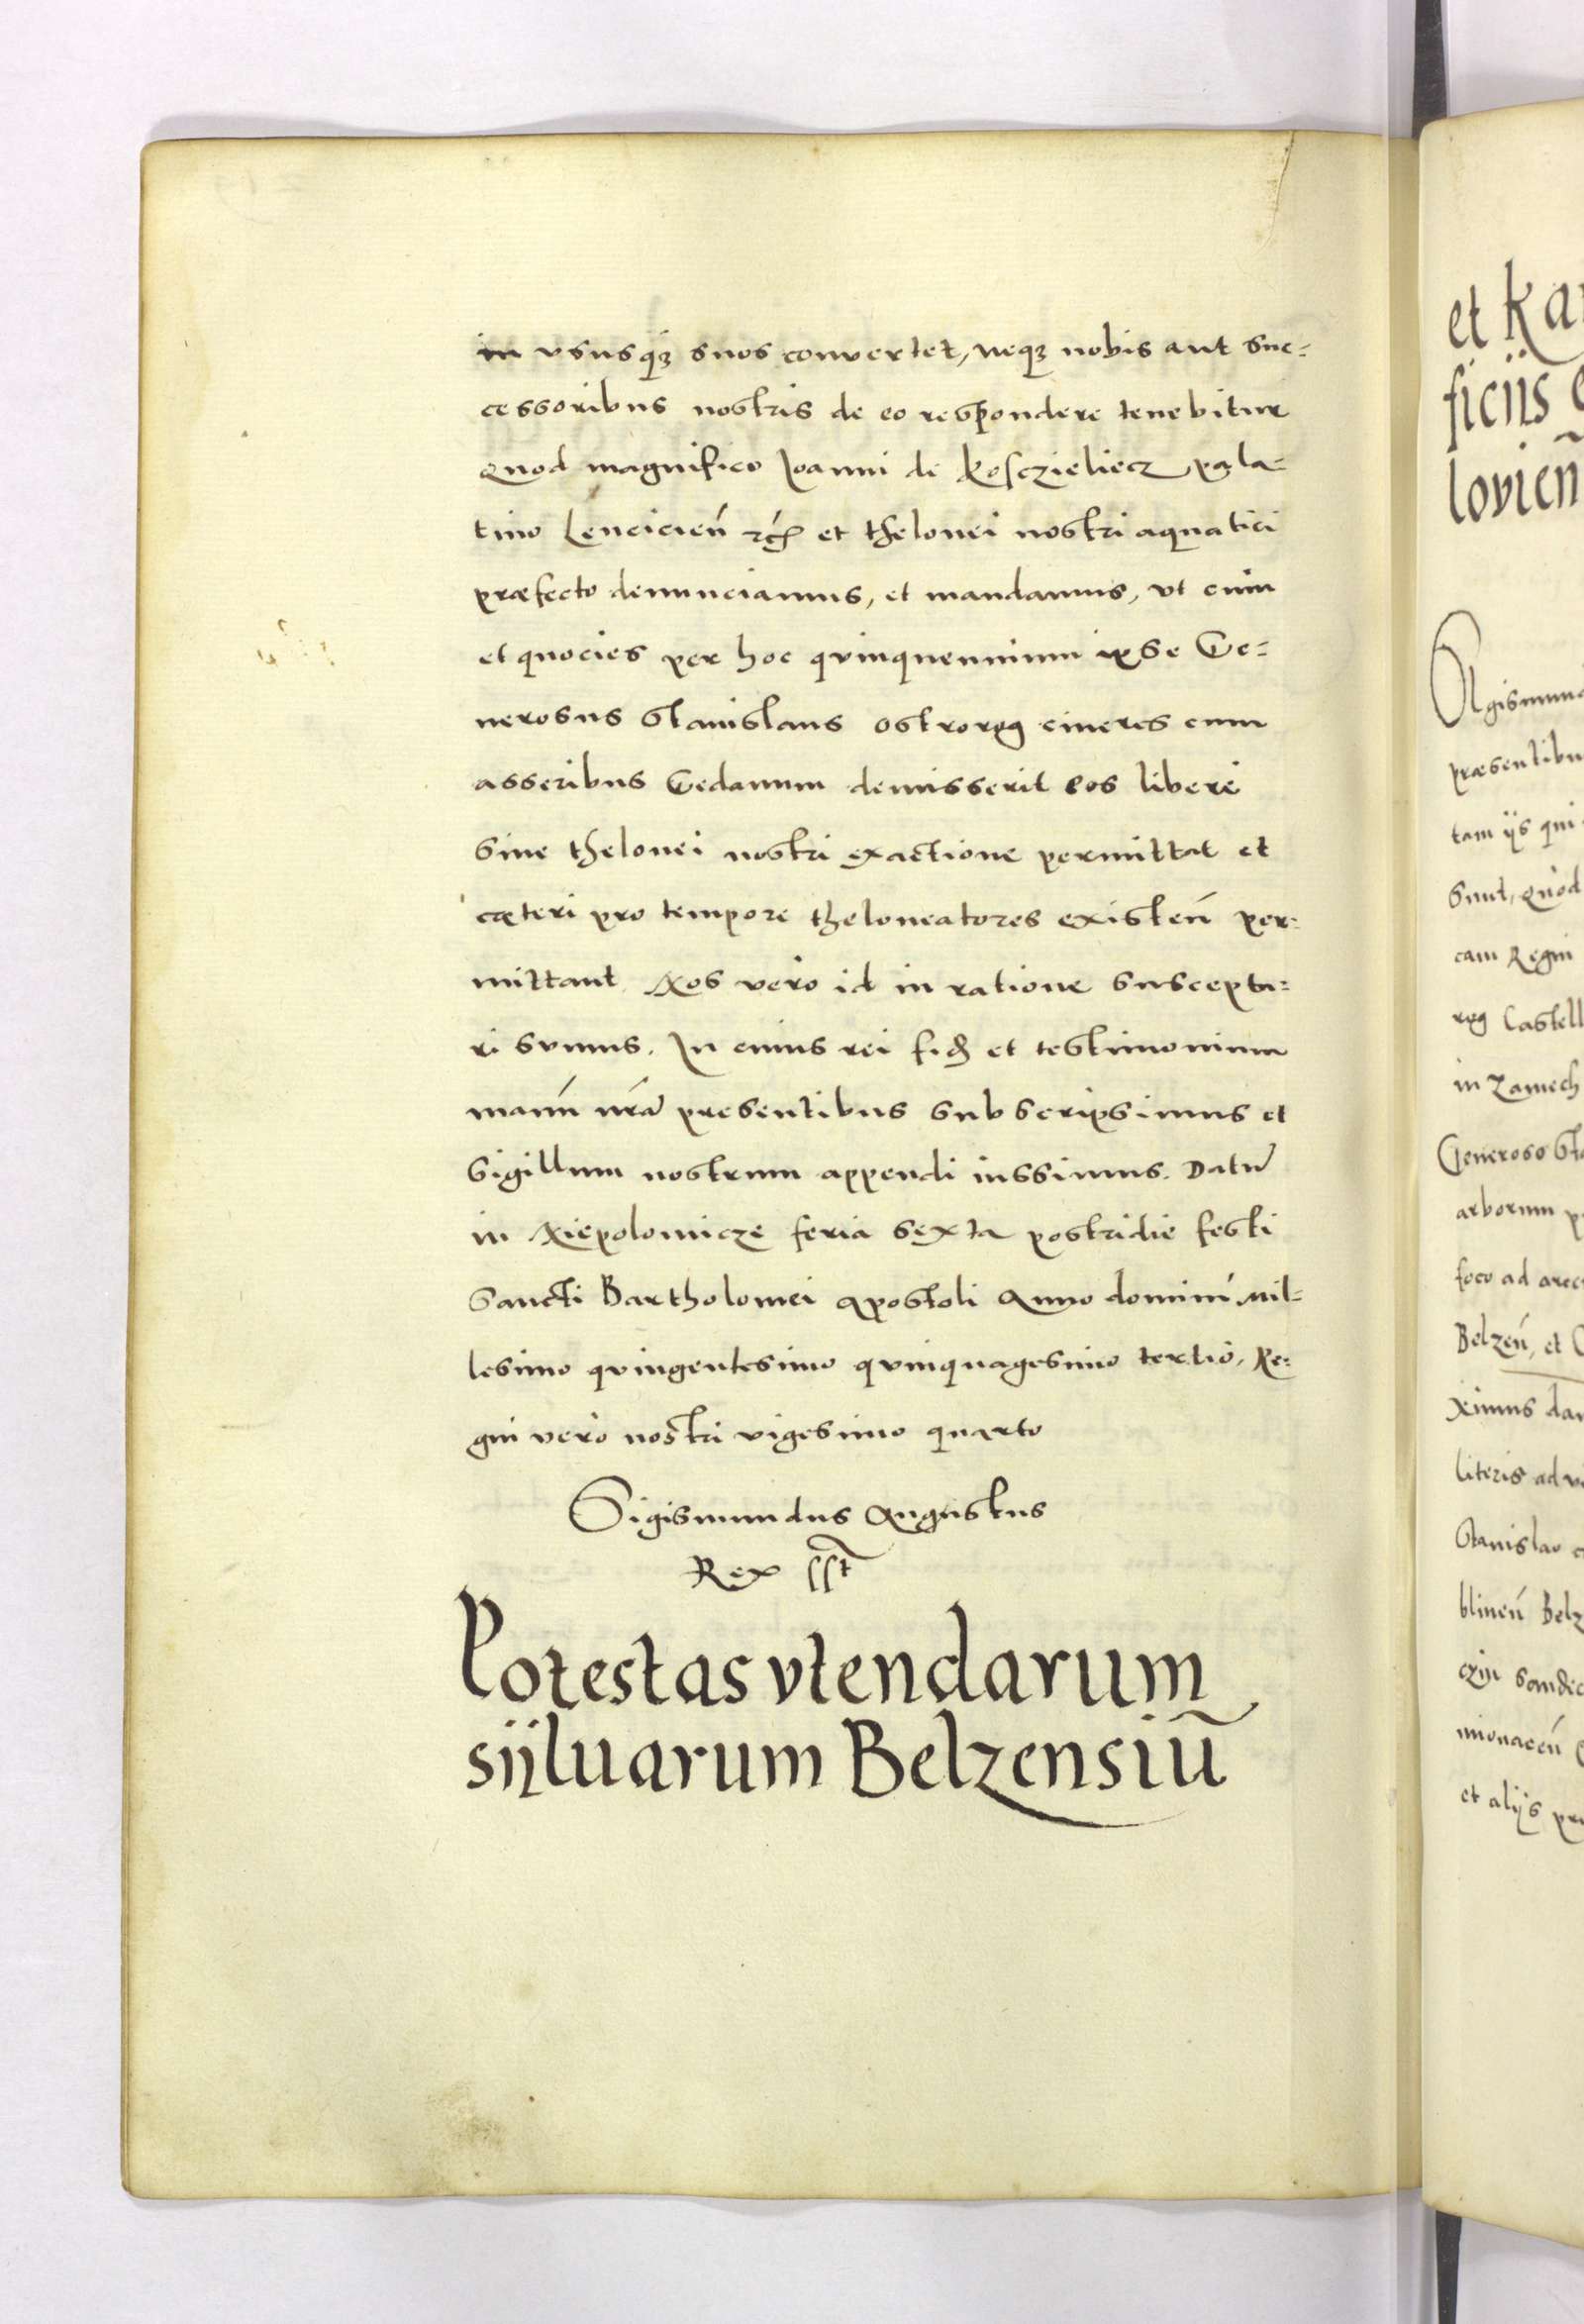 in vsusq₃ suos convertet, neq₃ nobis aut suc=
cessoribus nostris de eo respondere tenebitur
Quod magnifico Ioanni de Kosczieliecz pala=
tino Lencicien̄ et thelonei nostri aquatici
præfecto denunciamus, et mandamus, vt cum
et quocies per hoc qvinquennium ipse Ge=
nerosus Stanislaus Ostrorog cineres cum
asseribus Gedanum demisserit eos libere
sine thelonei nostri exactione permittat et
cæteri pro tempore theloneatores existen̄ per=
mittant Nos vero id in ratione suscepta=
ri sumus. In cuius rei fid et testimonium
manū nrā presentibus subscripsimus et
sigillum nostrum appendi iussimus. Datū
in Niepolomicze feria sexta postridie festi
Sancti Bartholomei apostoli Anno domini Mil=
lesimo qvingentesimo qvinquagesimo tertio, Re=
gni vero nostri vigesimo quarto
Sigismundus Augustus
Rex sst
Potestas vtendarum
sijluarum Belzensiū
et Kar
ficijs
lovien̄
Sigismun
præsentibu
tam ijs qui
sunt, Quod
cam Regni
rog Castell
in Zamech
Generoso Sta
arborum p
foco ad arec
Belzen̄, et
ximus dan
literis ad vi
Stanislao
blinen̄ Belz
czin Sandec
mionacen̄
et alijs pr